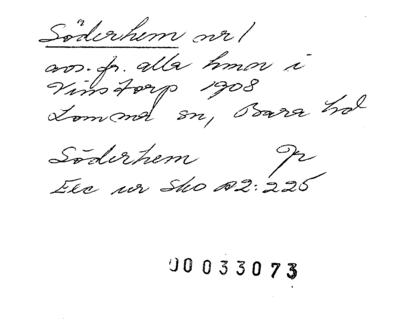 Söderhem nr 1
avs. fr. alla hmn i
Vinstorp 1908
Lomma sn, Bara hd
Söderhem
Elc ur Sko A2:225
00033073